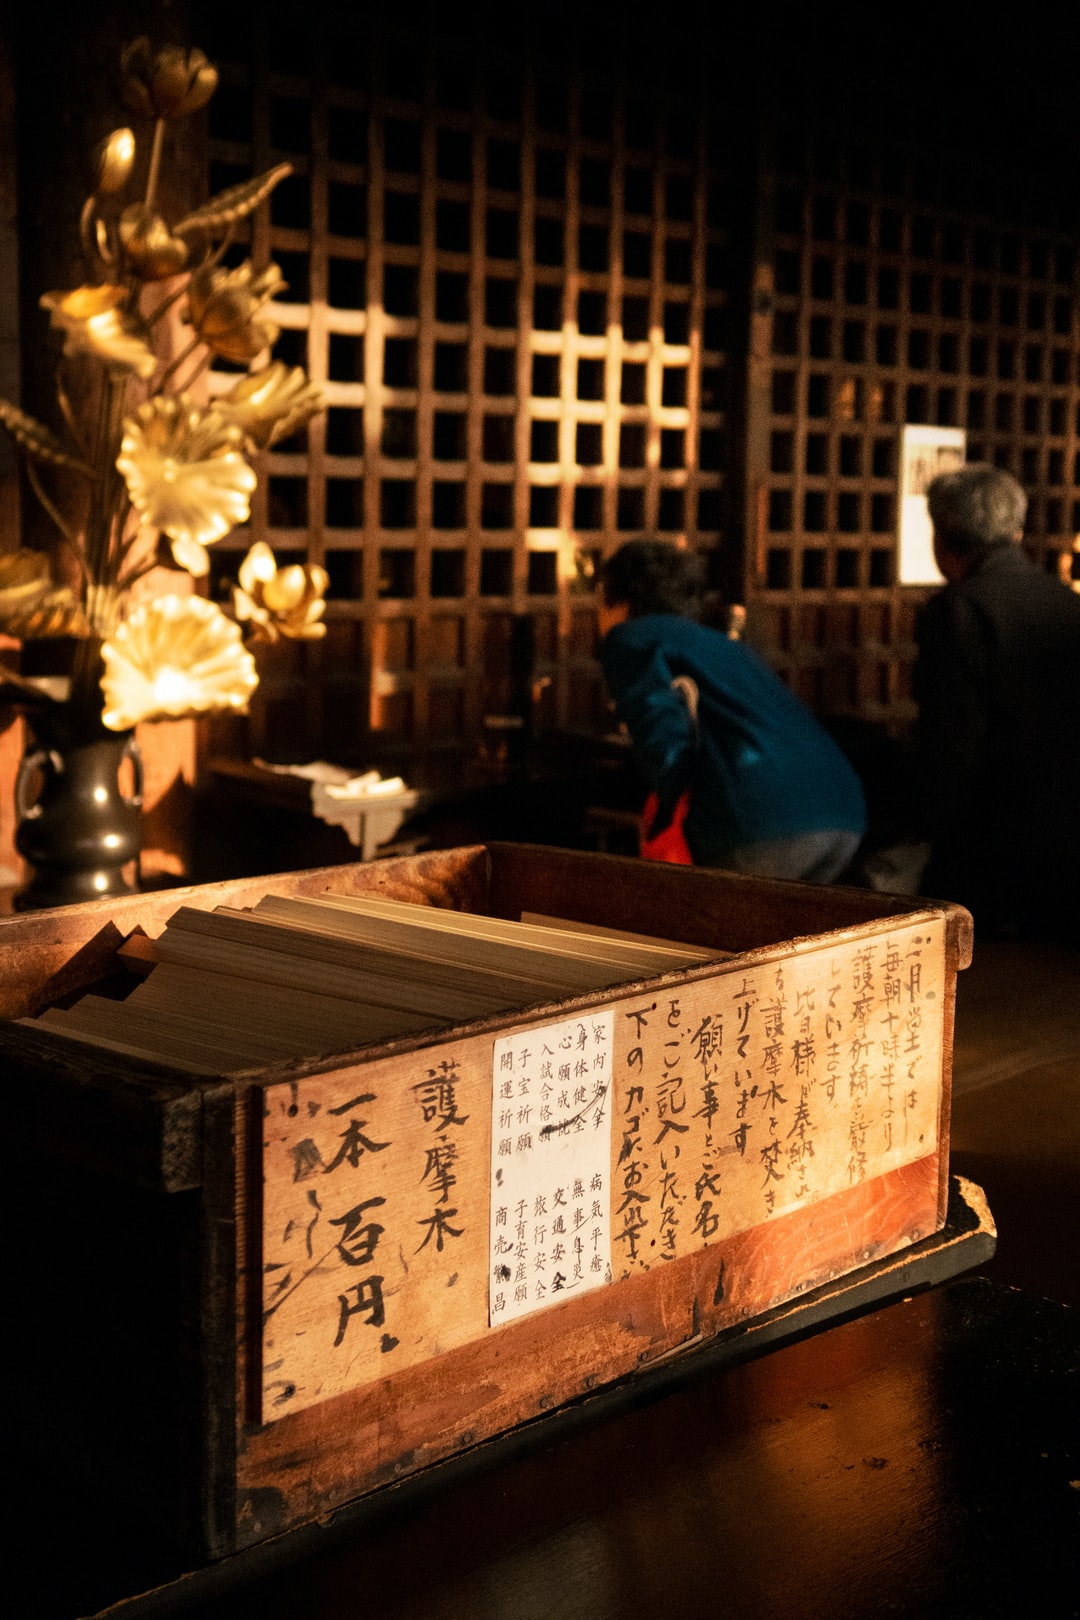 二月堂では
毎朝十時半より
護摩祈祷を厳修
しています。
皆様が奉納され
る護摩木を焚き
上げています。
願い事とご氏名
をご記入いただき
下のカゴにお入れ下さい
家内安全 病気平癒
身体健全 無事息災
心願成就 交通安全
入試合格願 旅行安全
子宝祈願 子育安産願
開運祈願 商売繁昌
護摩木
一本 百円